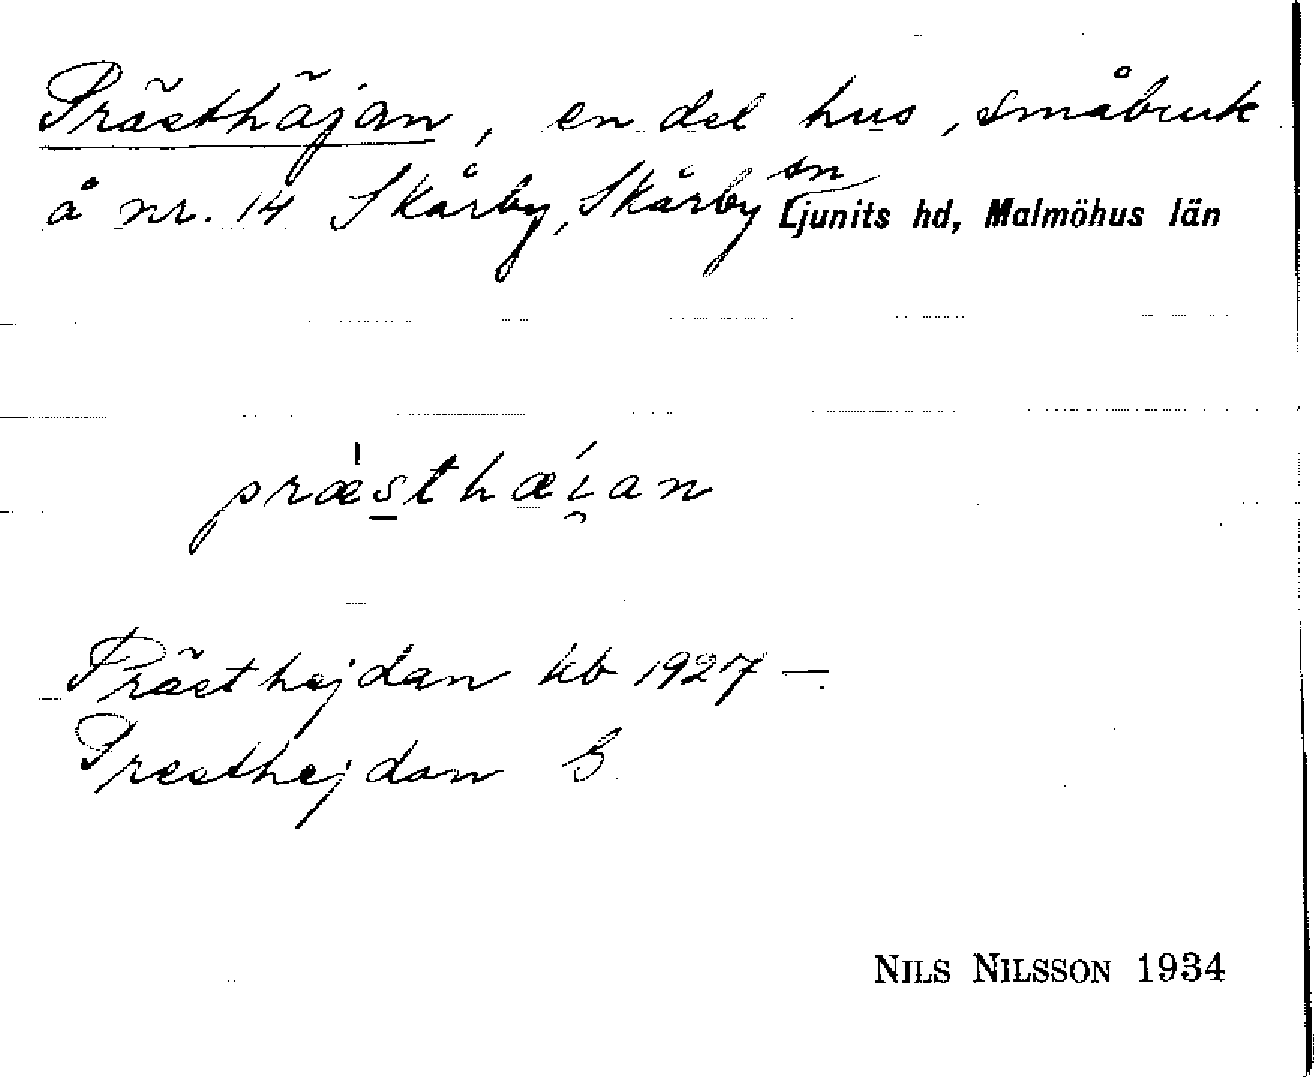 Prästhäjan, en del hus, småbruk
å nr. 14 Skårby, Skårby sn Ljunits hd, Malmöhus län
præ̍s̠thǽi̯an
Prästhejdan kb 1927 —
Presthejdan G
NILS NILSSON 1934